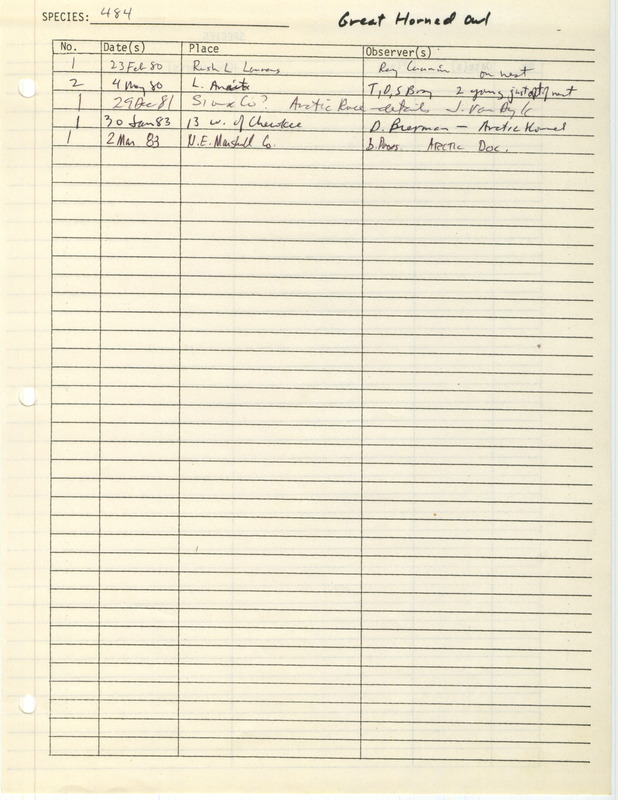 SPECIES: 484 Great Horned Owl
No. Date(s) Place Observer(s)
1 23 Feb 80 Rush L Laurens Ray Cummins on nest
2 4 May 80 L. T, D, S Bray 2 young just off nest
1 29 Dec 81 Sioux Co? Arctic Race - details J. Van Dyk
1 30 Jan 83 13 w. of Cherokee D. Bierman - Arctic Horned
1 2 Mar 83 N.E. Marshall Co. ARCTIC Doc.